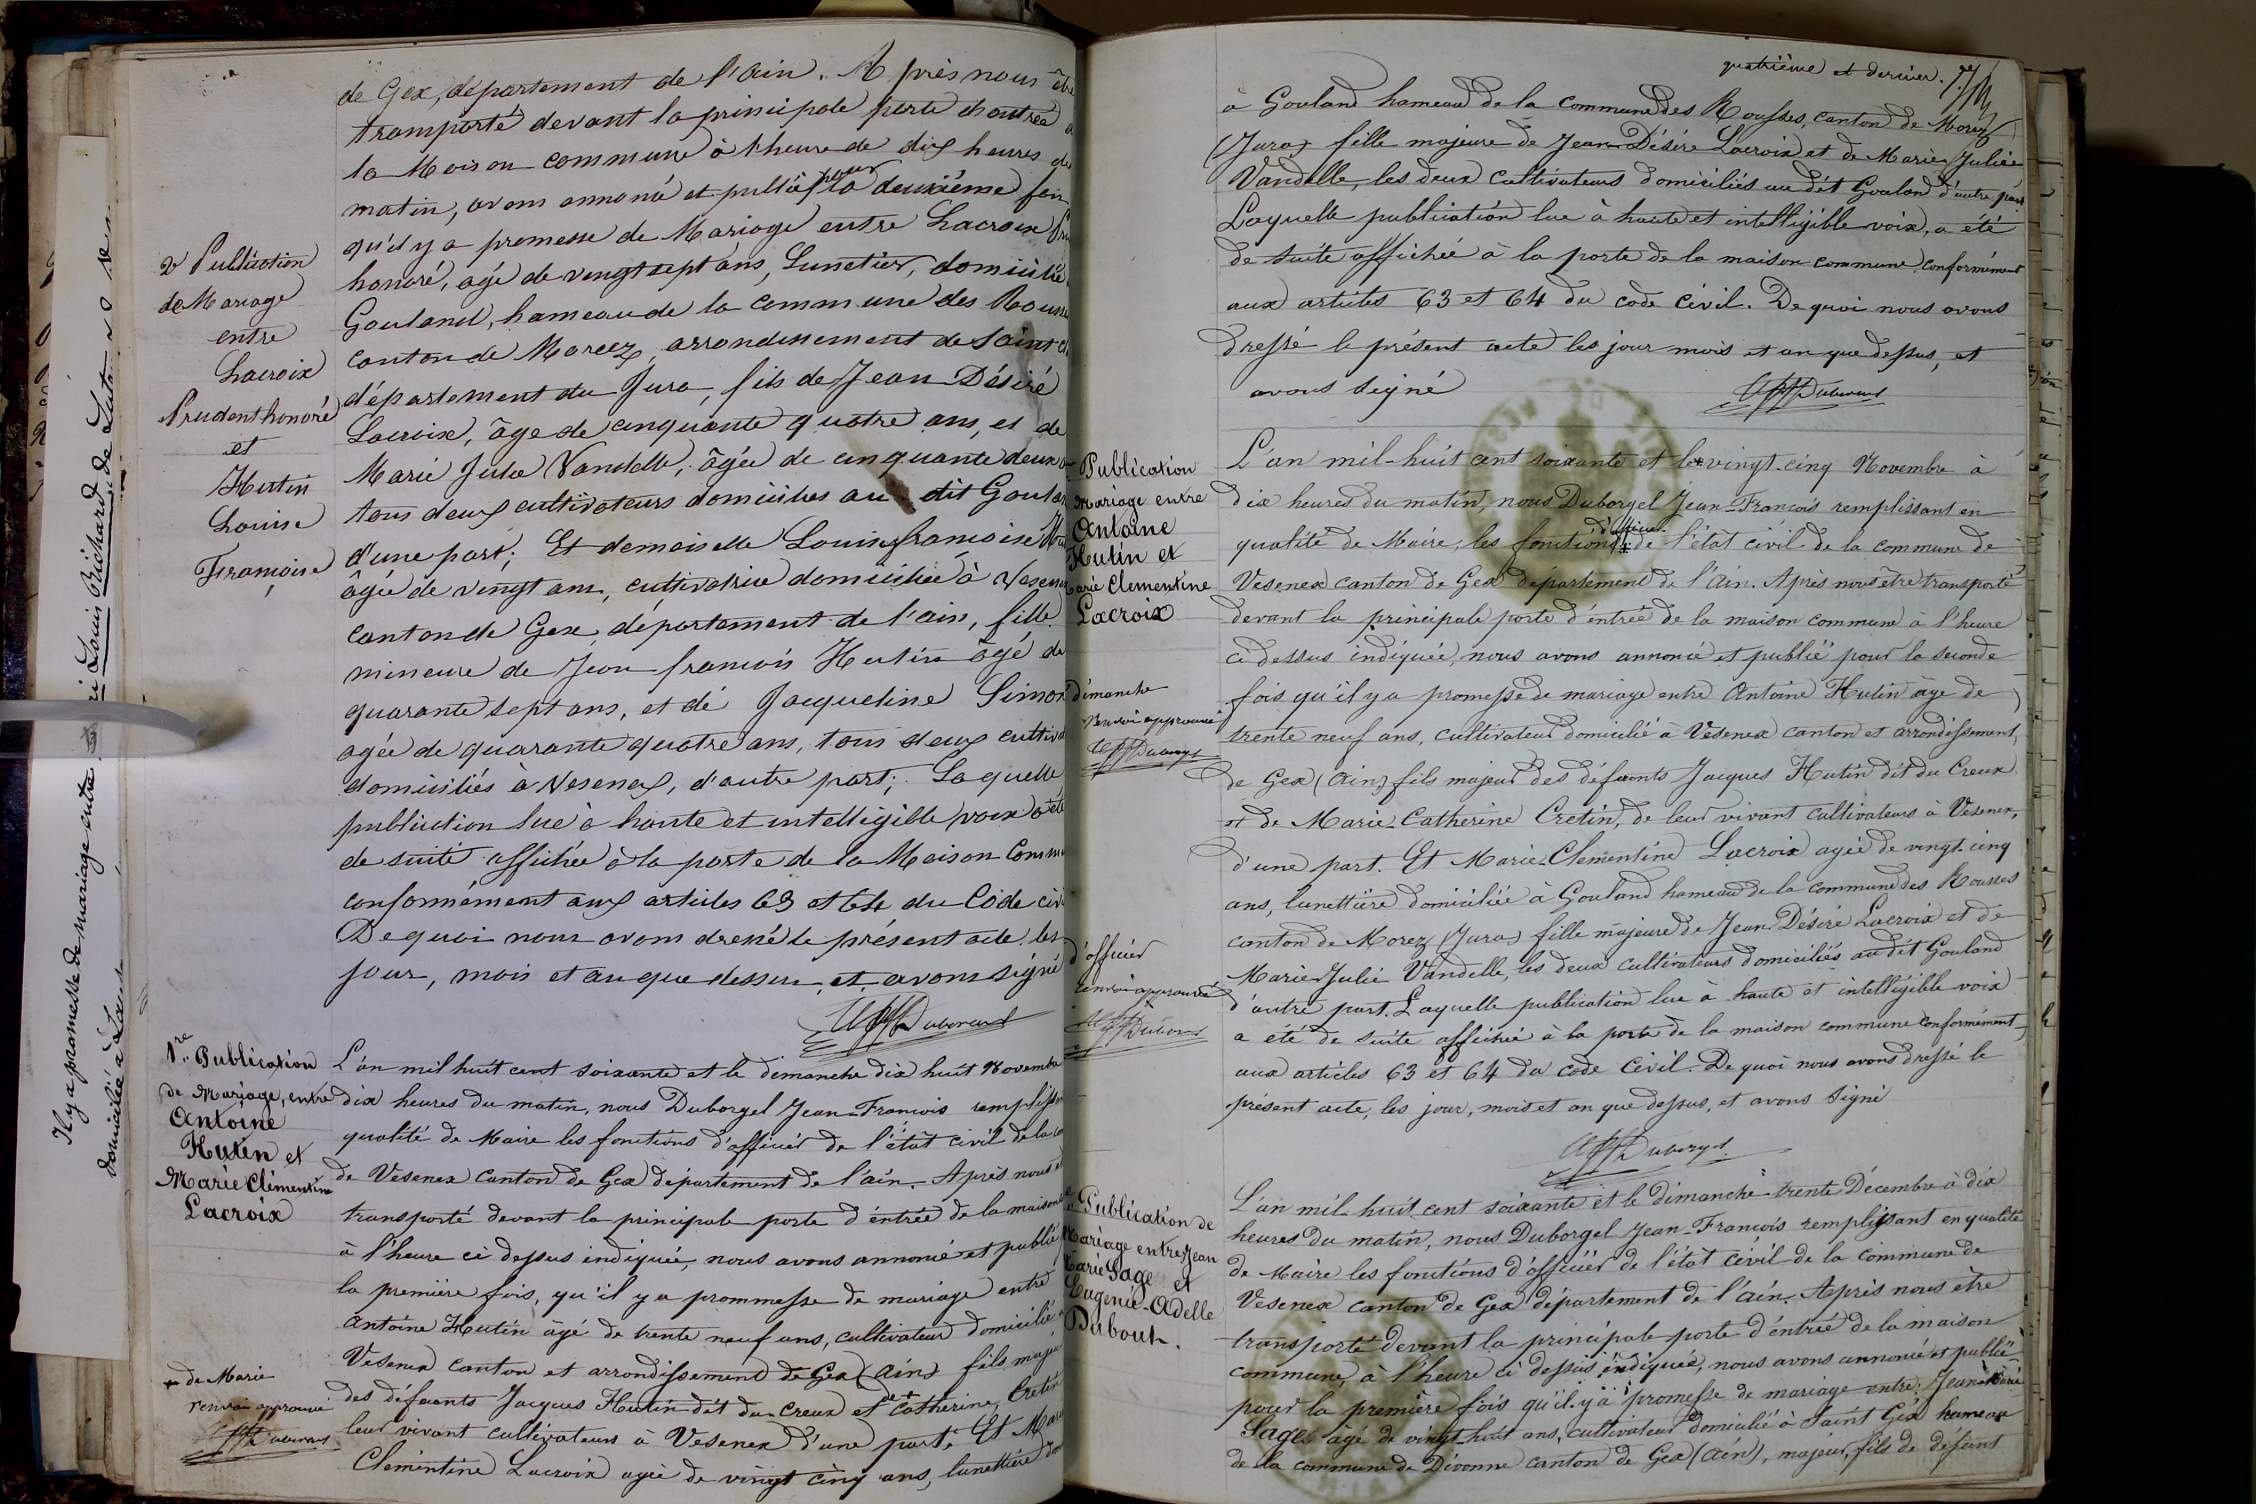 de Gex, département de l'ain. Après nous être
transporté devant la principale porte d'entrée
la Maison commune à l'heure de dix heures du
matin, avons annoncé et publié pour la deuxième fois
qu'il y a promesse de Mariage entre Lacroix
honoré, agé de vingt sept ans, Lunetier, domicilié
Gouland, hameau de la commune des Rousses
canton de Morez, arrondissement de Saint
département du Jura, fils de Jean Désiré
Lacroix, âgé de cinquante quatre ans, et de
Marie Julie Vandelle, âgée de cinquante deux
tous deux cultivateurs domiciliés au dit Gouland
d'une part; Et demoiselle Louise françoise
âgée de vingt ans, cultivatrice domiciliée à Vesenex
canton de Gex, département de l'ain, fille
mineure de Jean françois Hutin âgé de
quarante sept ans, et de Jacqueline Simon
agée de quarante quatre ans, tous deux
domiciliés à Vesenex, d'autre part; Laquelle
publication lue à haute et intelligible voix a été
de suite affichée à la porte de la Maison
conformément aux articles 63 et 64 du Code
De quoi nous avons dressé le présent acte les
jour, mois et an que dessus, et avons signé
2e Publication
de Mariage
entre
Lacroix
Prudent honoré
et
Hutin
Louise
Françoise
Il y a promesse de mariage entre Louis Richard de
domiciliée à
1re Publication
de Mariage, entre
Antoine
Hutin et
Marie Clémentine
Lacroix
L'an mil huit cent soixante et le dimanche dix huit Novembre
dix heures du matin, nous Duborgel Jean-François
qualité de Maire les fonctions d'officier de l'état civil de la
de Vesenex canton de Gex département de l'ain. Après nous
transporté devant la principale porte d'entrée de la maison
à l'heure ci dessus indiquée, nous avons annoncé et publié
la première fois, qu'il y a prommesse de mariage entre
Antoine Hutin âgé de trente neuf ans, cultivateur domicilié
Vesenex canton et arrondissement de Gex (Ain) fils majeur
des défunts Jacques Hutin dit du Creux et de + Catherine Cretin
leur vivant cultivateurs à Vesenex d'une part. Et Marie
Clémentine Lacroix agée de vingt cinq ans, lunettière
+ de Marie
renvoi approuvé
quatrième et dernier.
à Gouland hameau de la commune des Rousses, canton de Morez
(Jura) fille majeure de Jean-Désiré Lacroix et de Marie Julie
Vandelle, les deux cultivateurs domiciliés au dit Gouland d'autre part
Laquelle publication lue à haute et intelligible voix, a été
de suite affichée à la porte de la maison commune conformément
aux articles 63 et 64 du code civil. De quoi nous avons
dressé le présent acte les jour mois et an que dessus, et
avons signé
Publication
Mariage entre
Antoine
Hutin et
Marie Clementine
Lacroix
dimanche
Renvoi approuvé
d'officier
renvoi approuvé
L'an mil-huit cent soixante et le vingt-cinq Novembre à
dix heures du matin, nous Duborgel Jean-François remplissant en
qualité de Maire, les fonctions d'officier de l'état civil de la commune de
Vesenex canton de Gex département de l'Ain. Après nous être transporté
devant la principale porte d'entrée de la maison commune à l'heure
ci dessus indiquée, nous avons annoncé et publié pour la seconde
fois qu'il y a promesse de mariage entre Antoine Hutin âgé de
trente neuf ans, cultivateur domicilié à Vesenex canton et arrondissement,
de Gex (Ain) fils majeur des défunts Jacques Hutin dit du Creux
et de Marie-Catherine Cretin, de leur vivant cultivateurs à Vesenex,
d'une part. Et Marie-Clementine Lacroix agée de vingt-cinq
ans, lunettière domiciliée à Gouland hameau de la commune des Rousses
canton de Morez (Jura) fille majeure de Jean Désiré Lacroix et de
Marie-Julie Vandelle, les deux cultivateurs domiciliés audit Gouland
d'autre part. Laquelle publication lue à haute et intelligible voix
a été de suite affichée à la porte de la maison commune conformément,
aux articles 63 et 64 du code civil. De quoi nous avons dressé le
présent acte, les jour, mois et an que dessus, et avons signé
Publication de
Mariage entre Jean
Marie Sage et
Eugénie-Adelle
Dubout.
L'an mil-huit cent soixante et le dimanche trente Décembre à dix
heures du matin, nous Duborgel Jean-François remplissant en qualité
de Maire les fonctions d'officier de l'état civil de la commune de
Vesenex canton de Gex département de l'ain. Après nous être
transporté devant la principale porte d'entrée de la maison
commune, à l'heure ci dessus indiquée, nous avons annoncé et publié
pour la première fois qu'il y a promesse de mariage entre Jean-Marie
Sage agé de vingt-huit ans, cultivateur domicilié à Saint Gix hameau
de la commune de Divonne canton de Gex (Ain), majeur, fils de défunt